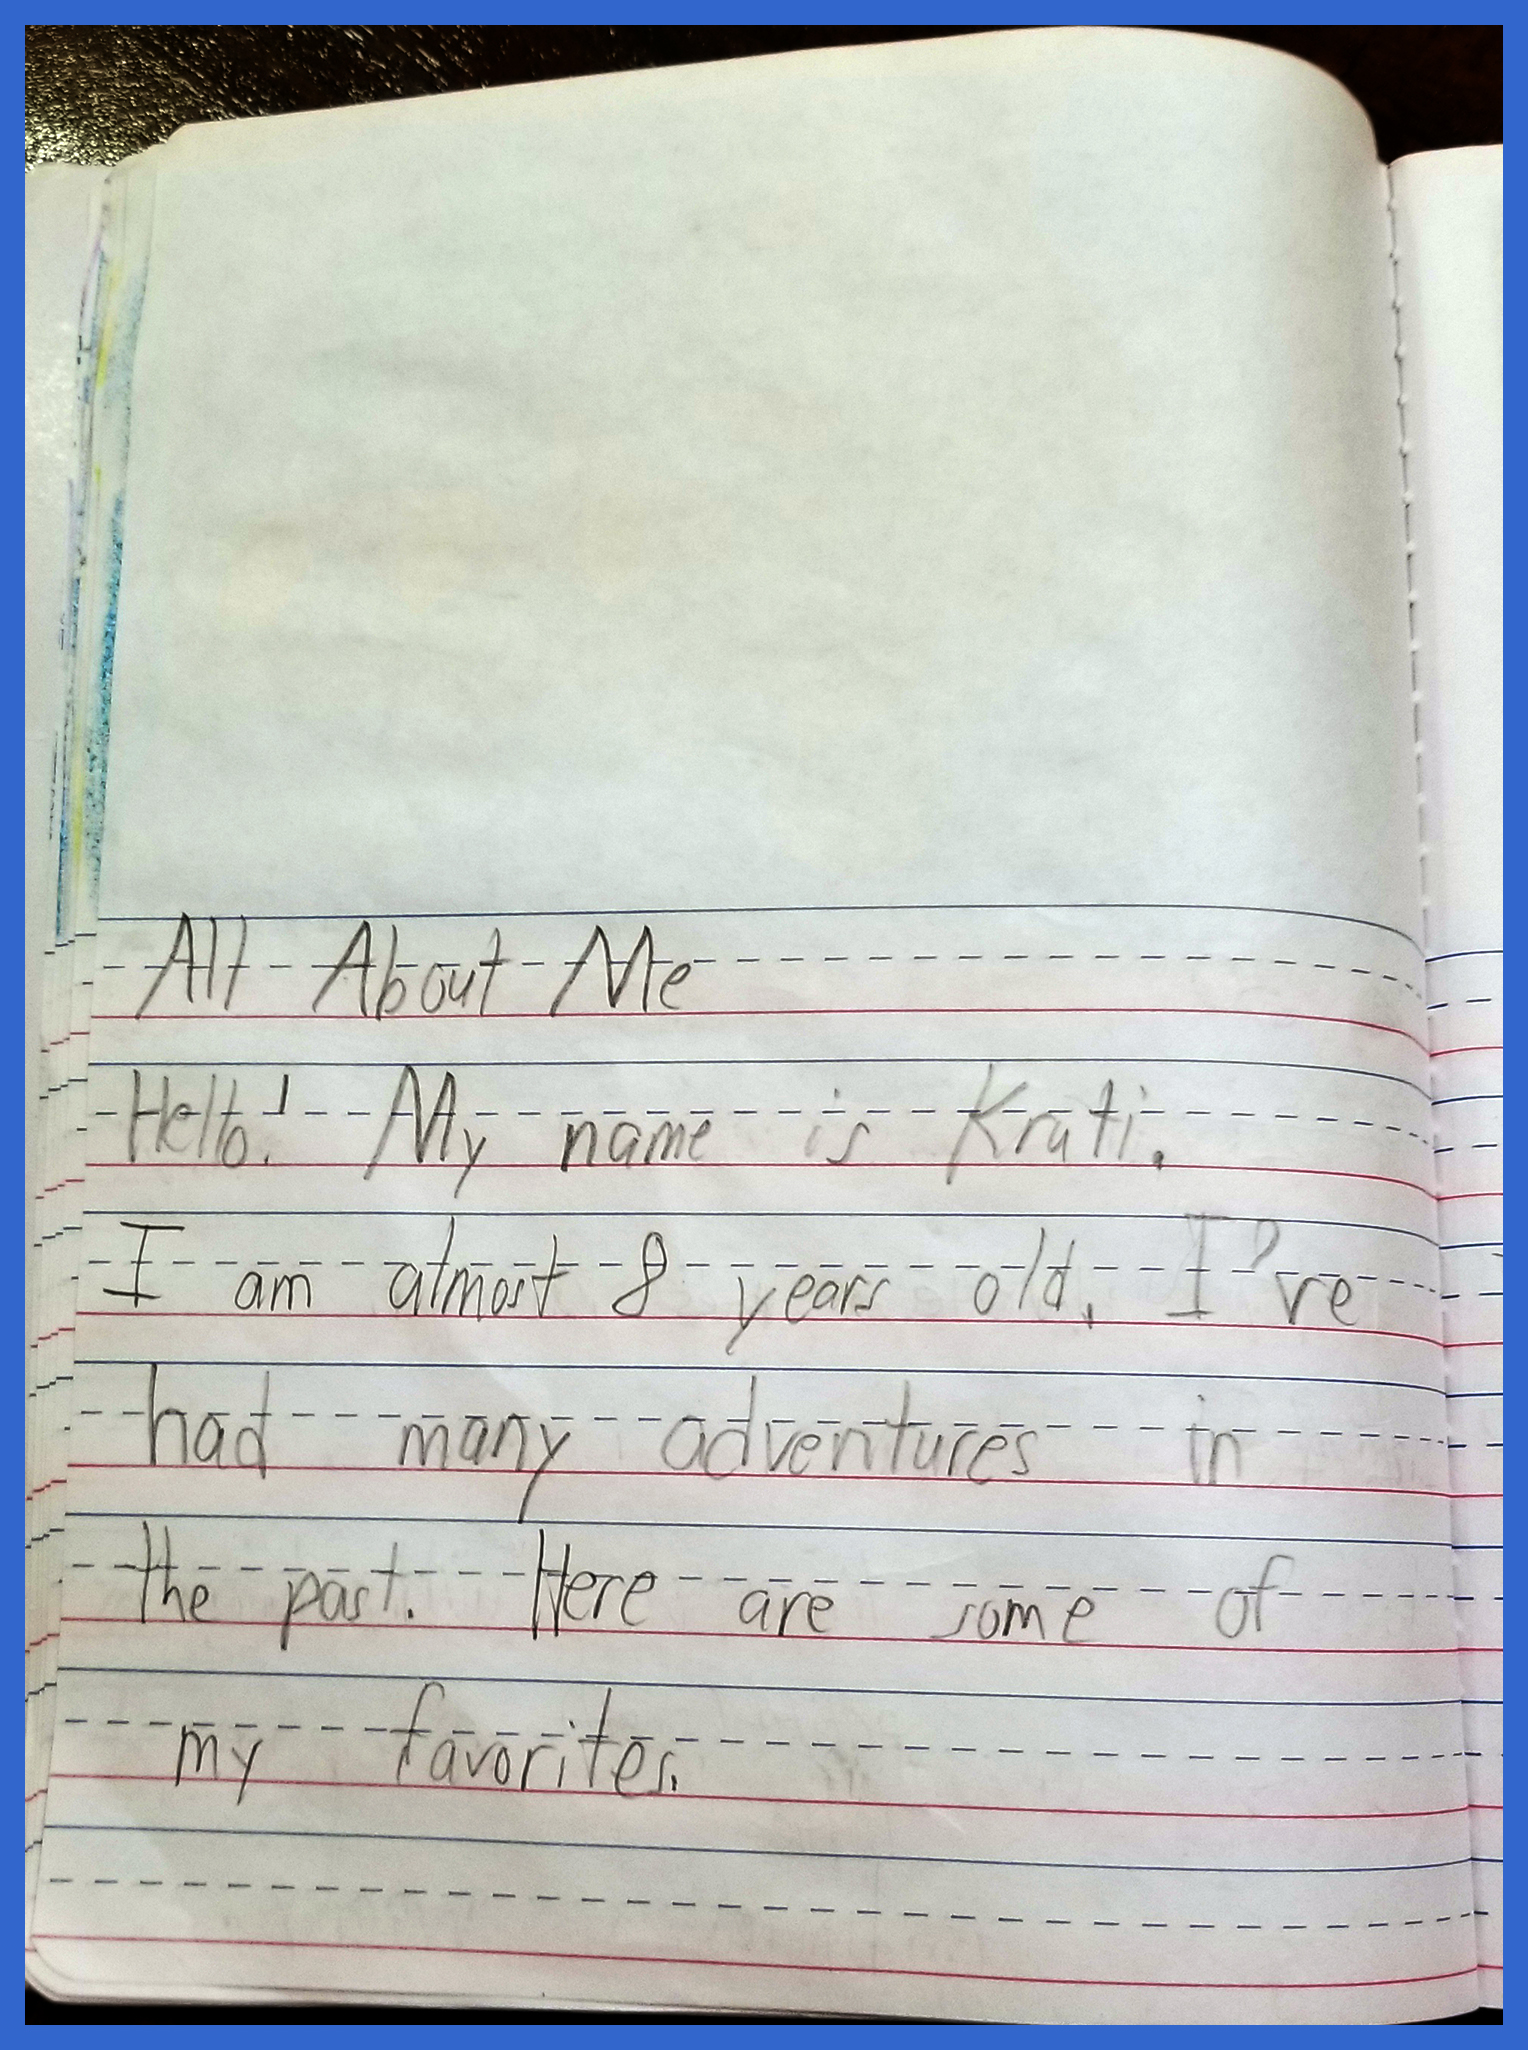 All About Me
Hello! My name is Krati.
I am almost 8 years old. I've
had many adventures in
the past. Here are some of
my favorites.